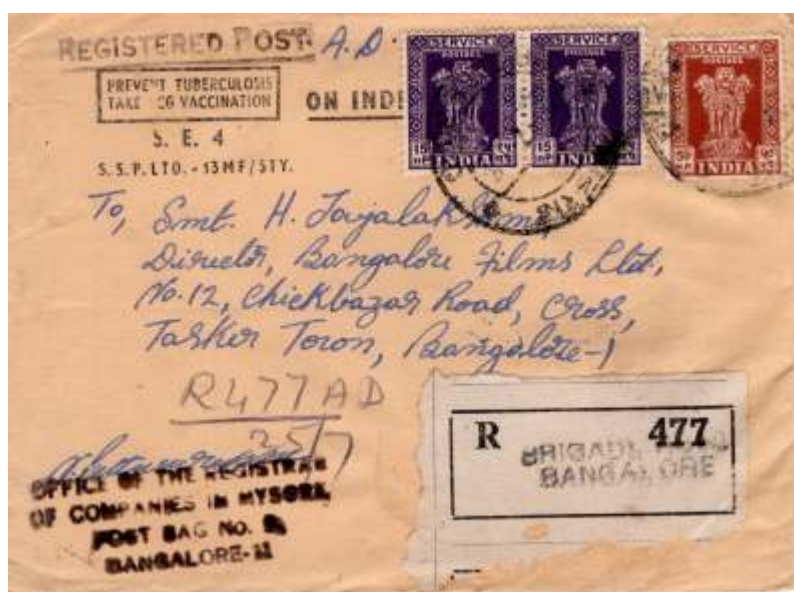 REGISTERED POST A.D.
PREVENT TUBERCULOSIS
TAKE CG VACCINATION
ON INDI
S. E. 4
S.S.P.LTD.-13MF/STY.
SERVICE
POSTAGE
15
INDIA
SERVICE
POSTAGE
15
INDIA
SERVICE
POSTAGE
INDIA
To, Smt. H. Jayalak
Director, Bangalore Films Ltd.,
No.12, Chickbazar Road, Cross,
Tasker Town, Bangalore-1
R477AD
25/7
R 477
BRIGADE
BANGALORE
OFFICE OF THE REGISTRAR
OF COMPANIES IN MYSORE,
POST BAG No.
BANGALORE-11